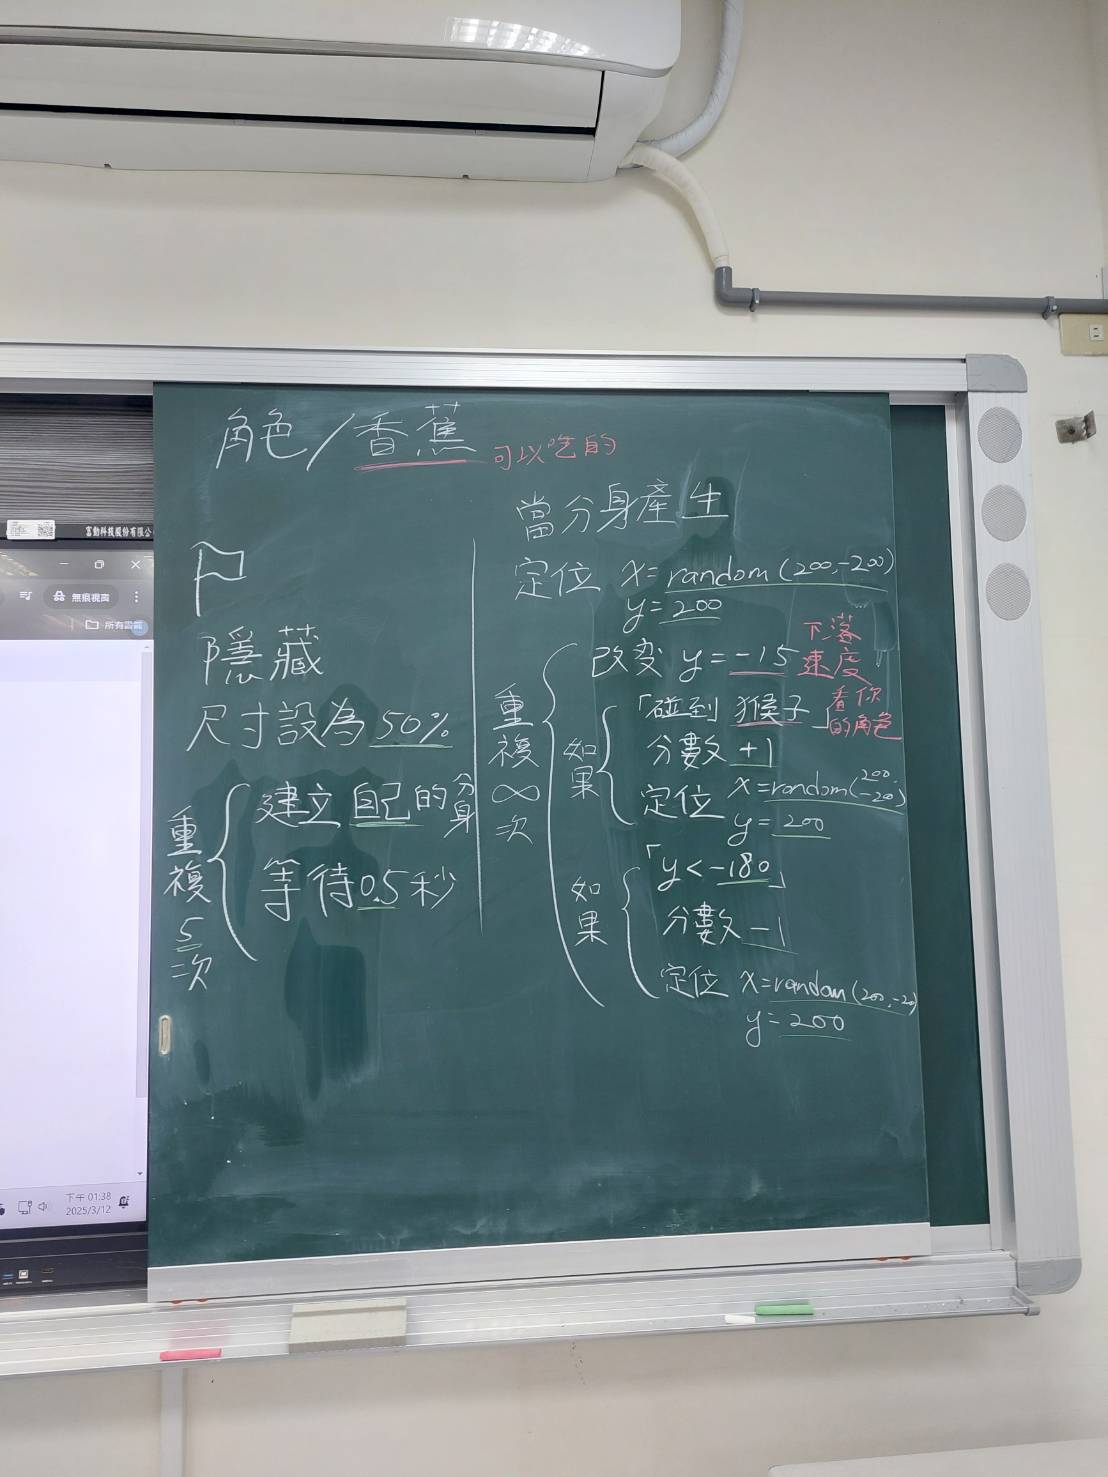 角色/香蕉 可以吃的
隱藏
尺寸設為50%
重複5次
建立自己的分身
等待0.5秒
當分身產生
定位 x=random(200,-200)
y=200
重複∞次
改變 y=-15 下落速度
如果
「碰到 猴子」 看你的角色
分數+1
定位 x=random(200,-200)
y=200
如果
「y<-180」
分數-1
定位 x=random(200,-20)
y=200
富動科技股份有限公
無痕視窗
所有書籤
下午 01:38
2025/3/12